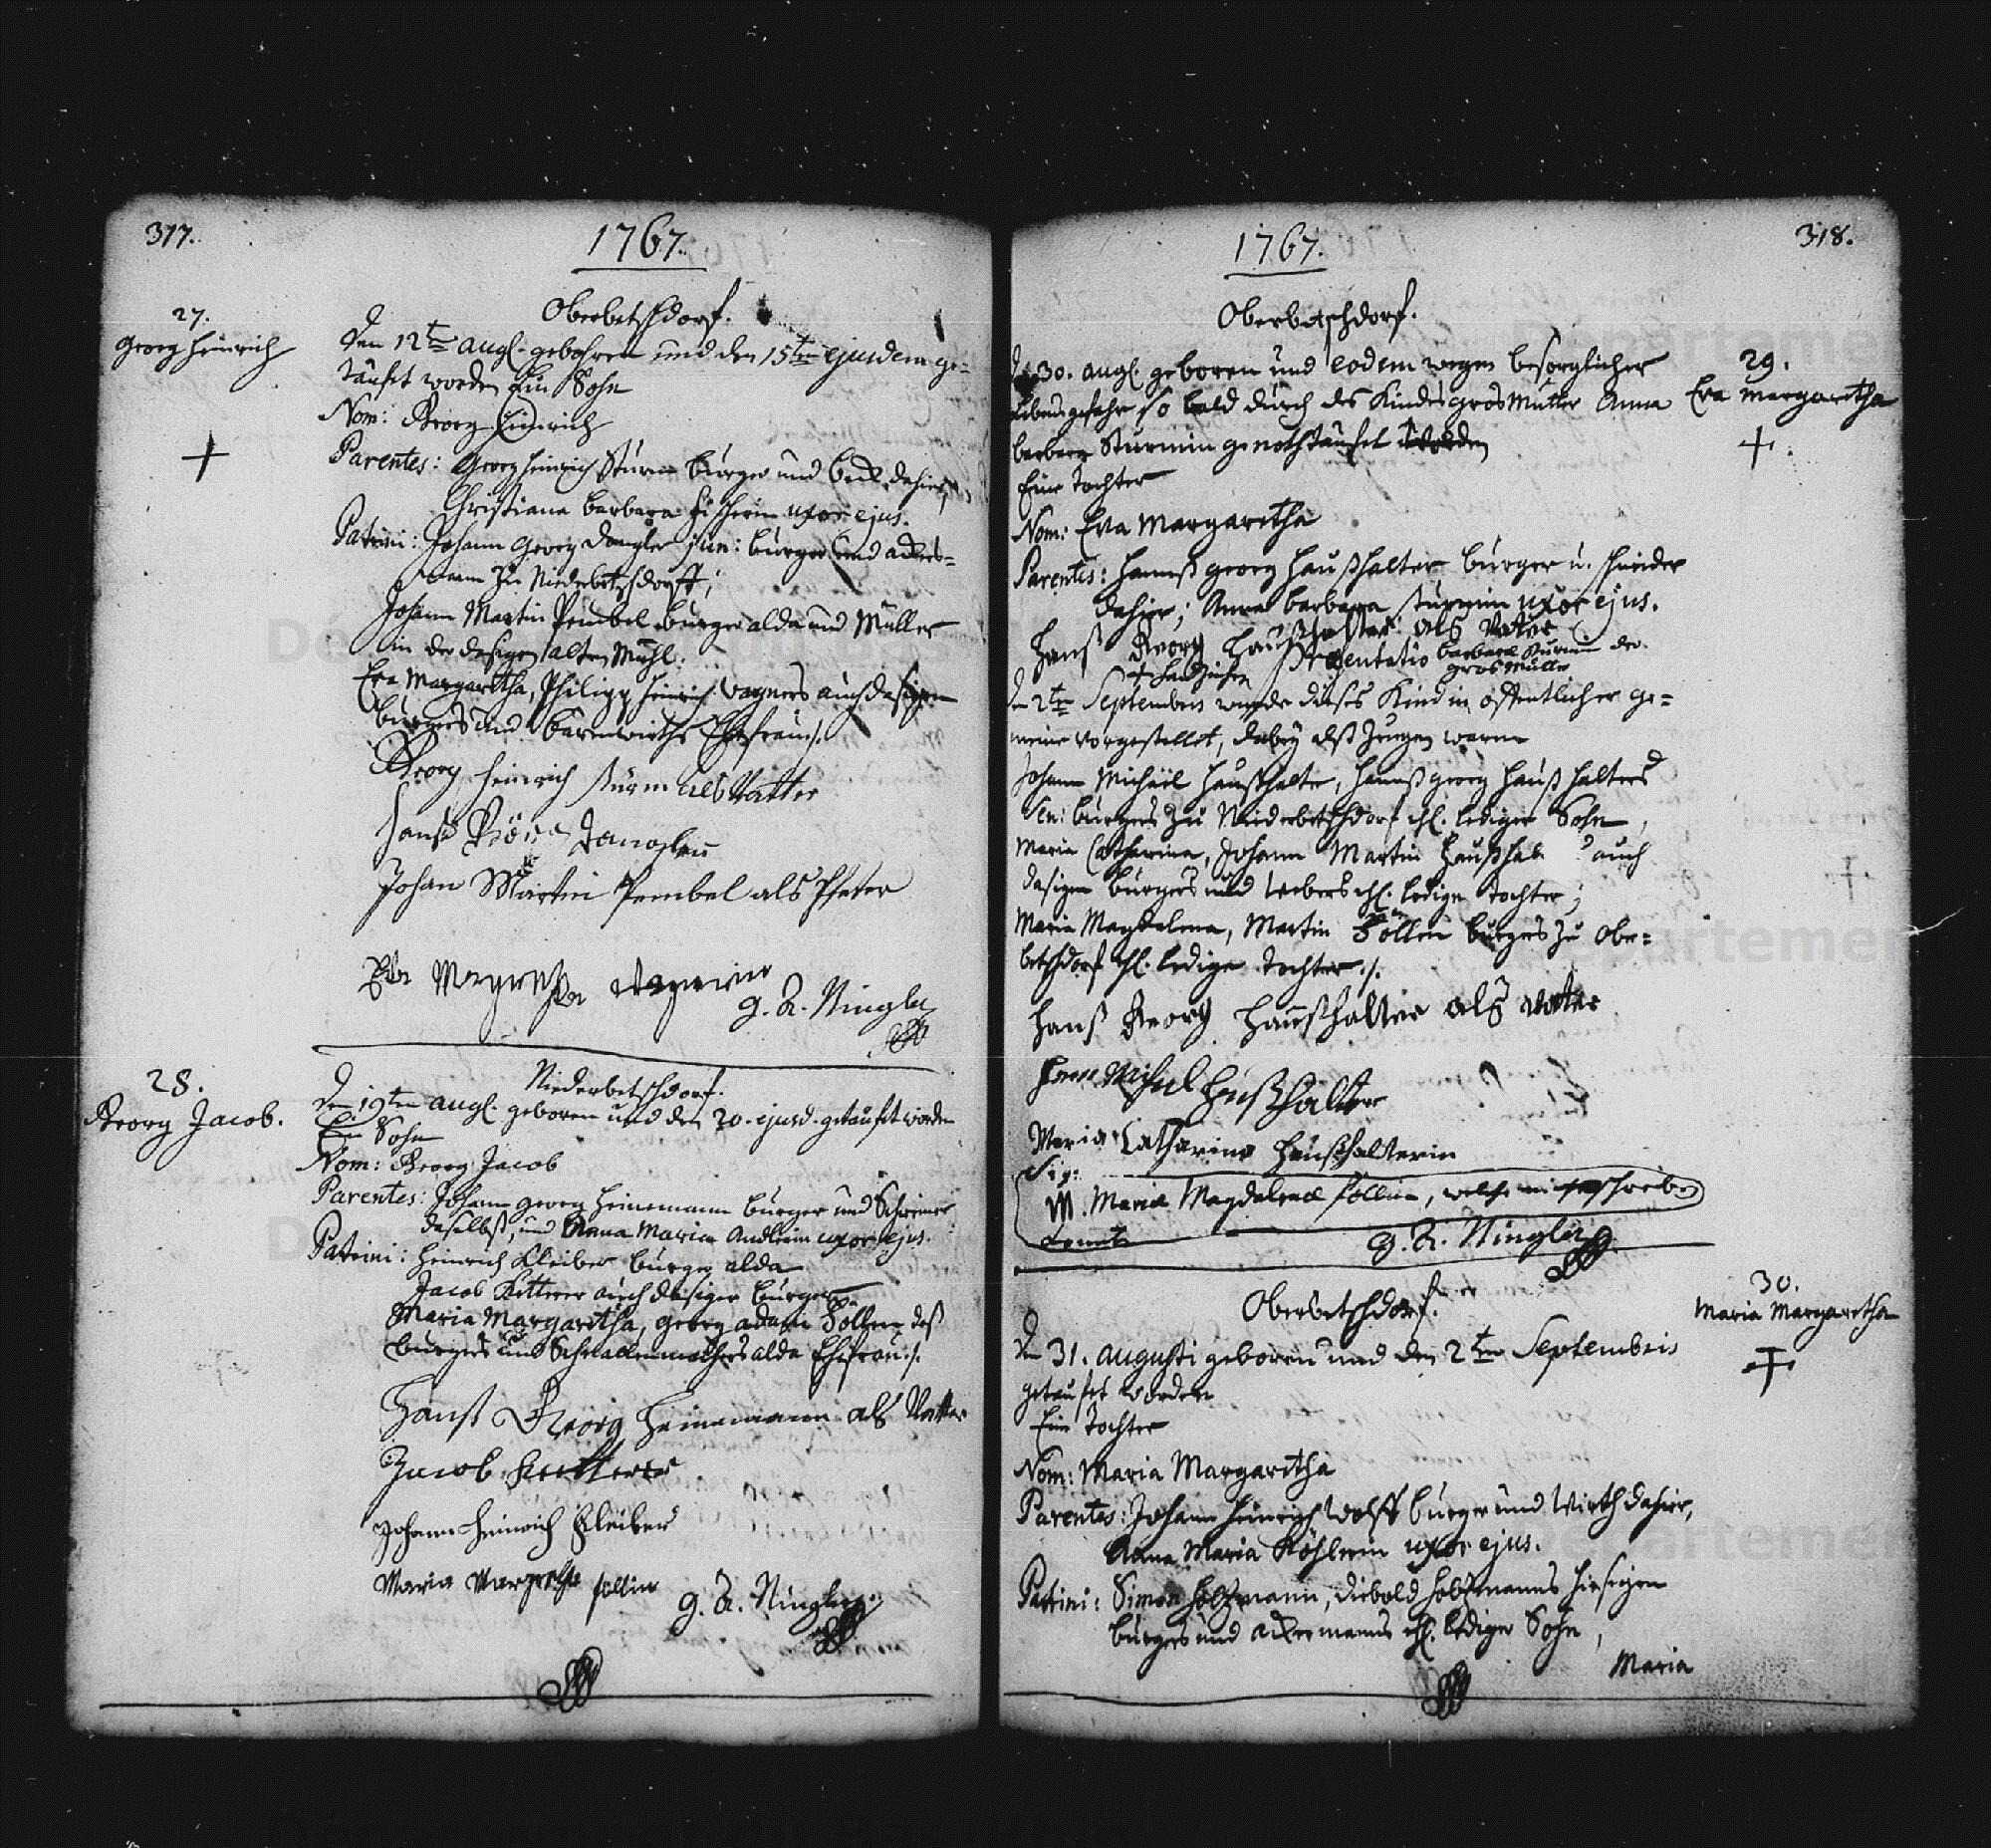 317.
1767.
27.
Georg Heinrich
Oberbetschdorf.
Den 12ten augl. gebohren und den 15ten ejusdem ge=
täufft worden Ein Sohn
Nom: Georg Heinrich
Parentes: Georg Heinrich Sturm burger und beck dahier,
Christiana barbara Fischerin uxor ejus.
Patrini: Johann Georg Dangler jun: burger und ackers=
mann zu Niederbetschdorff;
Johann Martin Pembel burger alda und Müller
in der dasigen alten Mühl.
Eva Margaretha, Philipp Heinrich Vagners auch dasigen
burgers und bärenwirths Ehefrau ./.
Georg Heinrich Sturm als Vatter
Hanß Görg
Johan Martin Pembel als Pfeter
Eva Wagnerin
G. R. Ningler
28.
Georg Jacob.
Niederbetschdorf.
Den 19ten augl. geboren und den 20. ejusd. getaufft worden
Ein Sohn
Nom: Georg Jacob
Parentes: Johann Georg Heinemann burger und Schreiner
daselbst, und Anna Maria uxor ejus.
Patrini: Heinrich Kleiber burger alda
Jacob Ketterer auch dasiger burger
Maria Margaretha, Georg adam Söllen, deß
burgers und Schnallenmachers alda Ehefrau ./.
Hanß Georg Heinemann als Vatter
Jacob Ketterer
Johann Heinrich Kleiber
Maria Margretha söllin
G. R. Ningler
1767.
318.
Oberbetschdorf.
29.
Eva Margaretha
30. augl. geboren und eodem wegen besorglicher
Lebensgefahr so bald durch des Kindes grosMutter Anna
barbara Sturmin genothtäufet worden
Eine Tochter
Nom: Eva Margaretha
Parentes: Hannß Georg Haußhalter burger u. schneider
dahier; Anna barbara Sturmin uxor ejus.
Hanß Georg Haußhalter als Vatter
+ handzeichen barbara Sturmin der
Praesentatio grosMutter
Den 2ten Septembris wurde dieses Kind in öffentlicher ge=
meine vorgestellet, dabey alß Zeugen waren
Johann Michael Haußhalter, Hannß Georg Haußhalters
sen: burgers zu Niederbetschdorf ehl. lediger Sohn,
Maria Catharina, Johann Martin auch
dasigen burgers und webers ehl. ledige Tochter;
Maria Magdalena, Martin Söllen burgers zu Ober=
betschdorf ehl. ledige Tochter ./.
Hanß Georg Haußhalter als Vatter
Michel Haußhalter
Maria Catharina Haußhalterin
Sig:
M. Maria Magdalena söllin, welche nicht schreiben
konnte
G. R. Ningler
30.
Maria Margaretha
Oberbetschdorf.
Den 31. augusti geboren und den 2ten Septembris
getaufft worden
Eine Tochter
Nom: Maria Margaretha
Parentes: Johann Heinrich Wolff burger und Wirth dahier,
Anna Maria Köhlerin uxor ejus.
Patrini: Simon Holtzmann, Diebold Holtzmanns hiesigen
burgers und ackermanns ehl. lediger Sohn,
Maria